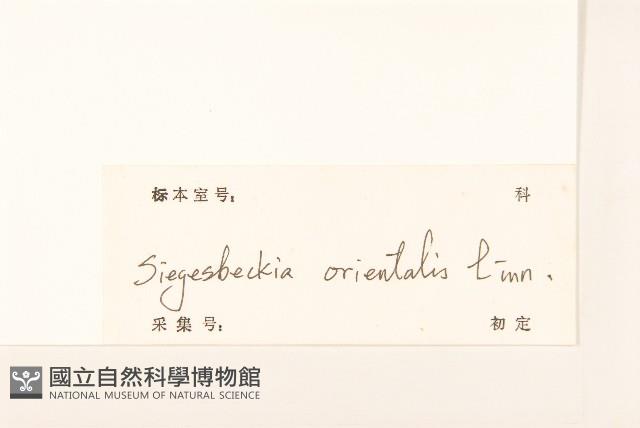 标本室号： 科
Siegesbeckia orientalis Linn.
采集号： 初定
國立自然科學博物館
NATIONAL MUSEUM OF NATURAL SCIENCE